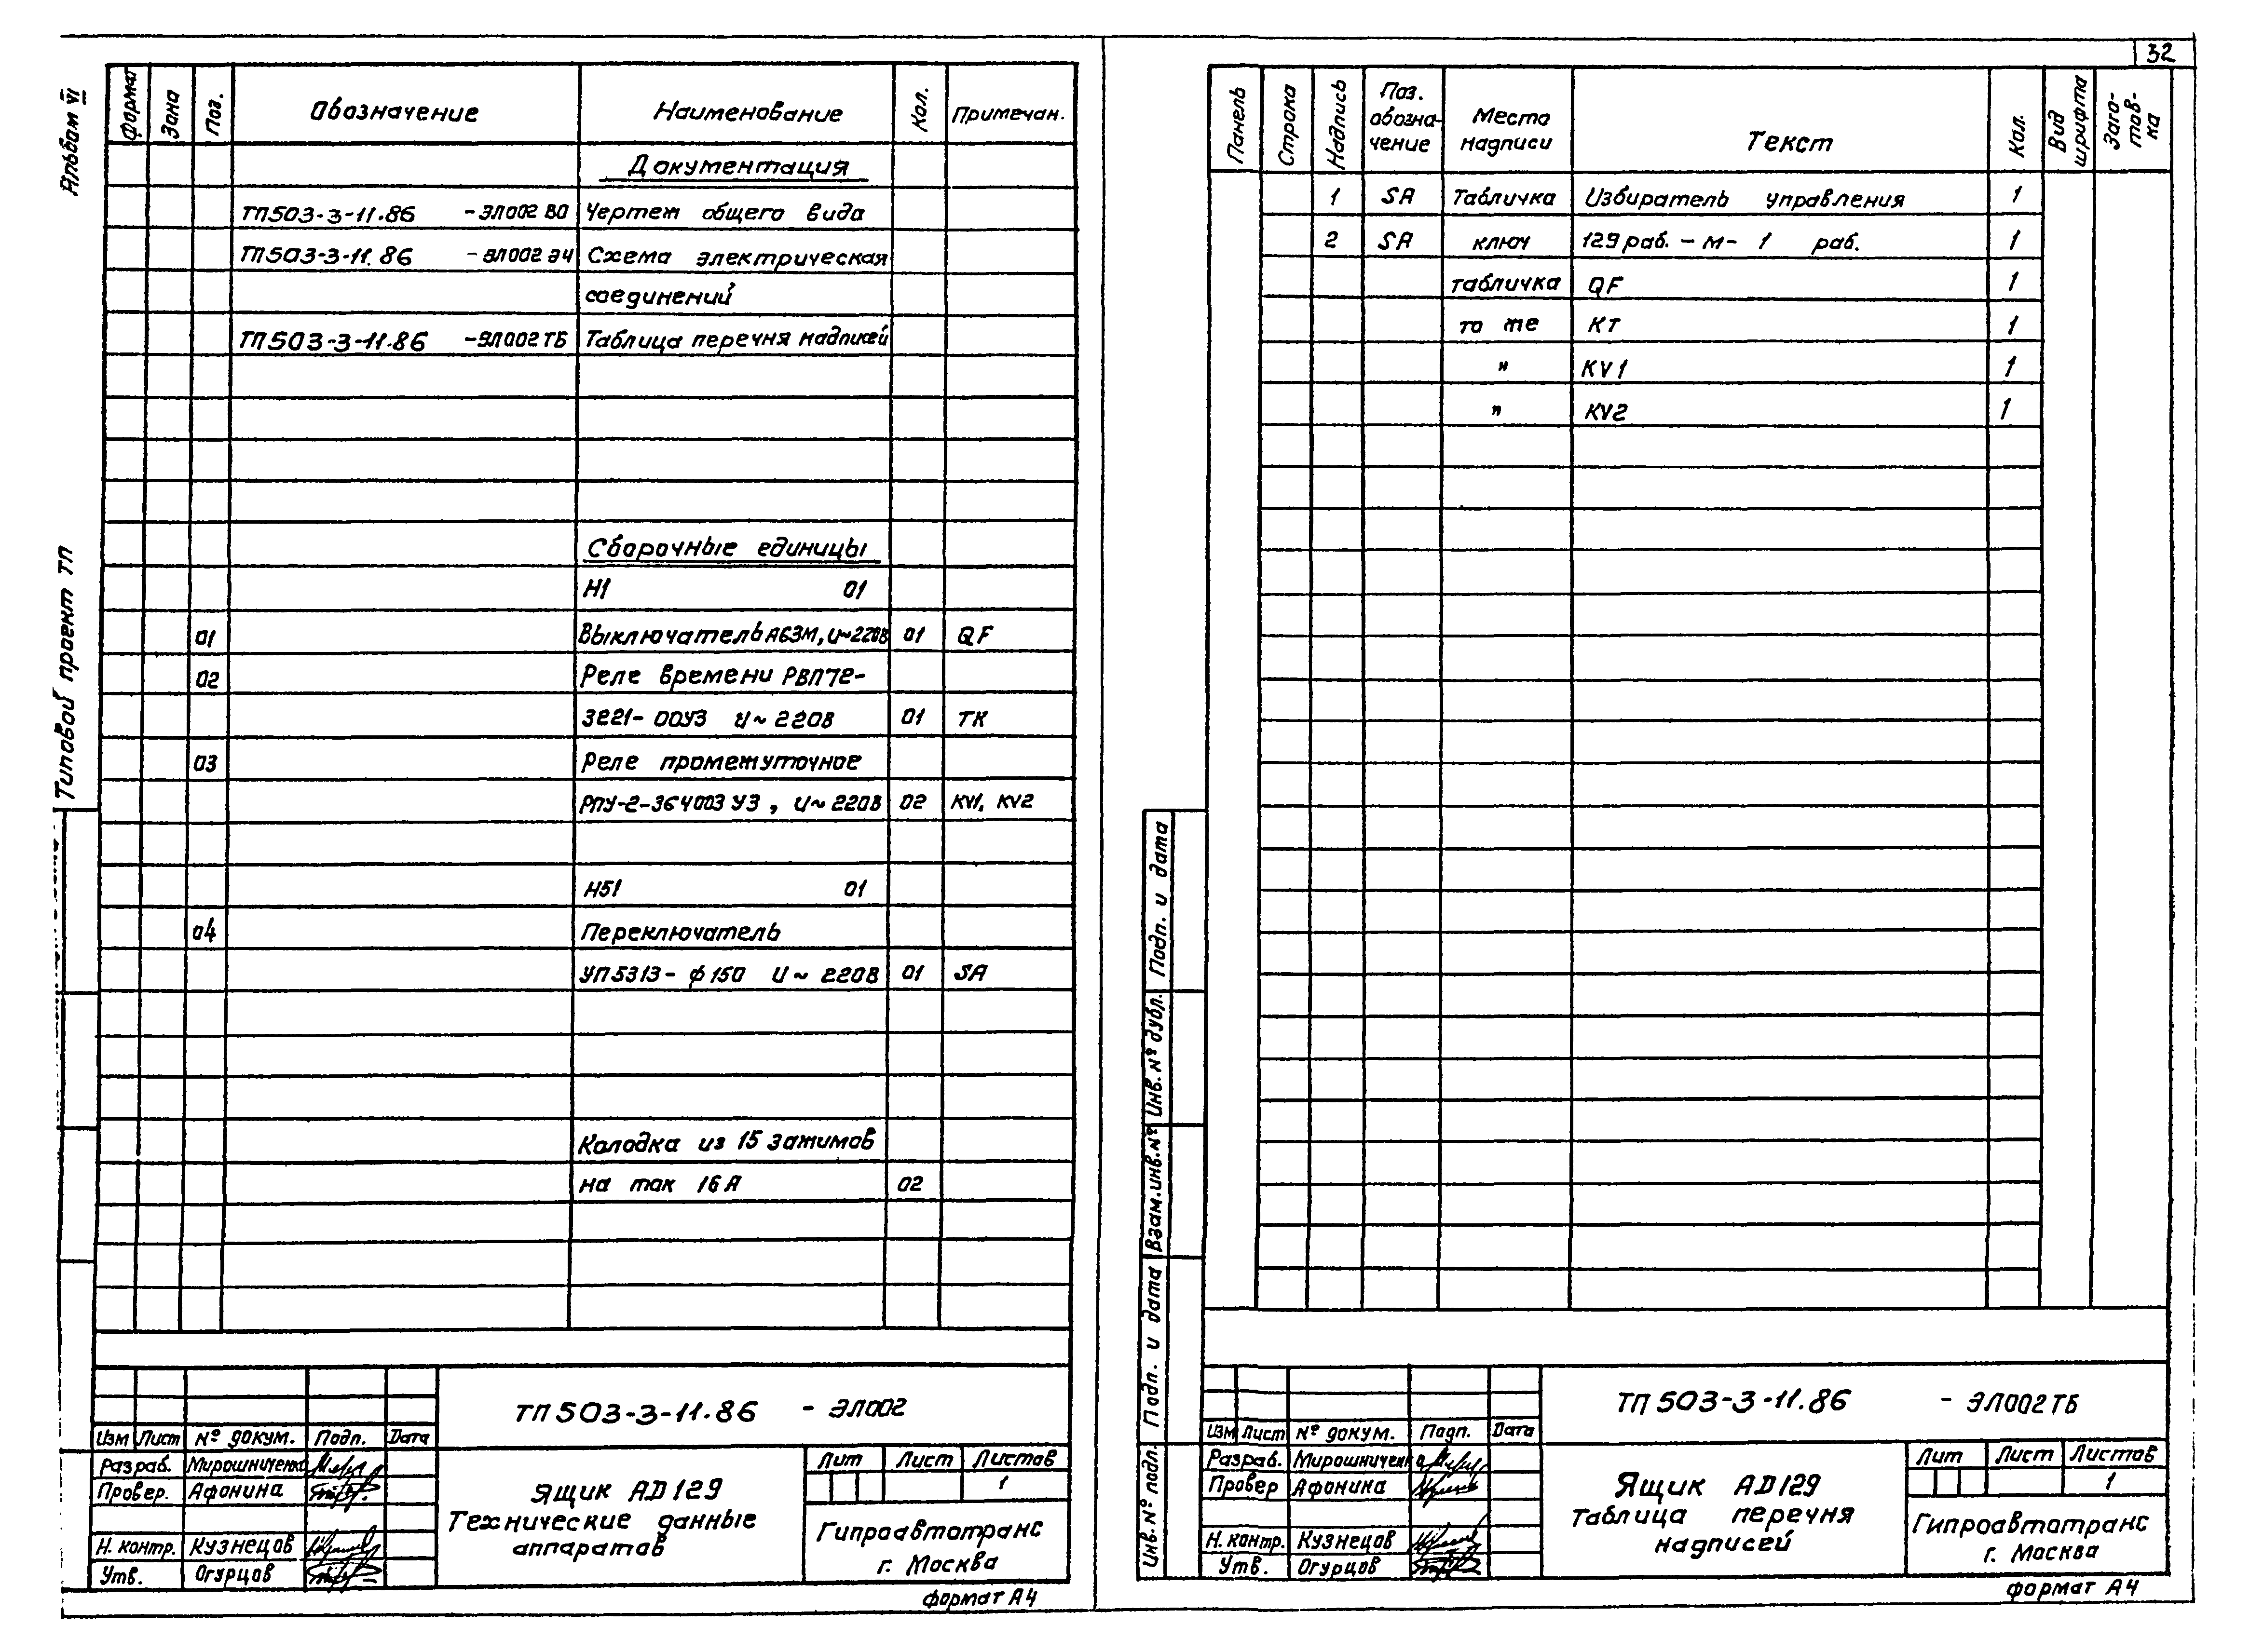 32
Альбом VI
Типовой проект ТП
Формат Зона Поз. Обозначение Наименование Кол. Примечан.
Документация
ТП503-3-11.86 -ЭЛ002 ВО Чертеж общего вида
ТП503-3-11.86 -ЭЛ002 Э4 Схема электрическая
соединений
ТП503-3-11.86 -ЭЛ002ТБ Таблица перечня надписей
Сборочные единицы
Н1 01
01 Выключатель А63М, U~220В 01 QF
02 Реле времени РВП72-
3221-00У3 U~220В 01 ТК
03 Реле промежуточное
РПУ-2-364003 У3, U~220В 02 KV1, KV2
Н51 01
04 Переключатель
УП5313-ф150 U~220В 01 SA
Колодка из 15 зажимов
на ток 16А 02
ТП503-3-11.86 - ЭЛ002
Изм Лист № докум. Подп. Дата
Разраб. Мирошниченко
Провер. Афонина
Н. контр. Кузнецов
Утв. Огурцов
Ящик АД129
Технические данные
аппаратов
Лит Лист Листов
1
Гипроавтотранс
г. Москва
формат А4
Панель Строка Надпись Поз. обозна-чение Место надписи Текст Кол. Вид шрифта Заго-тов-ка
1 SA Табличка Избиратель управления 1
2 SA ключ 129 раб. - м - 1 раб. 1
табличка QF 1
то же КТ 1
" KV1 1
" KV2 1
Подп. и дата
Инв. № дубл.
Взам. инв. №
Подп. и дата
Инв. № подл.
ТП503-3-11.86 - ЭЛ002ТБ
Изм Лист № докум. Подп. Дата
Разраб. Мирошниченко
Провер Афонина
Н. контр. Кузнецов
Утв. Огурцов
Ящик АД129
Таблица перечня
надписей
Лит Лист Листов
1
Гипроавтотранс
г. Москва
формат А4